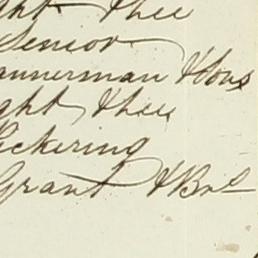 ght Thee
Senior
annerman & Sons
ght & Thee
ickering
Grant & Bro